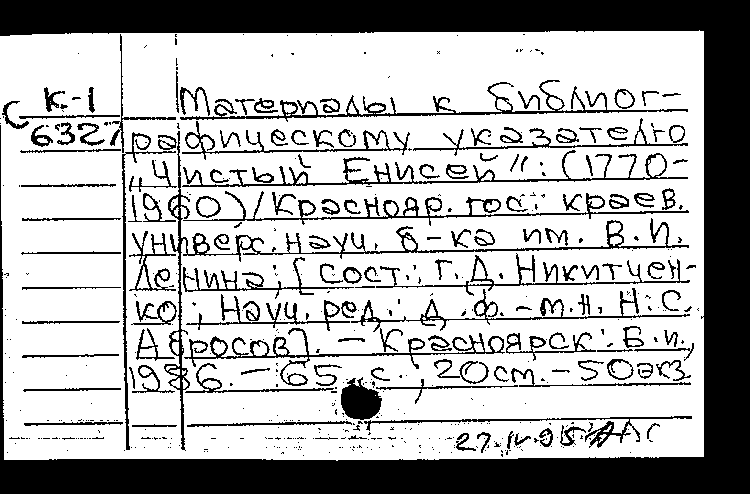 С К-1 Материалы к библиог-
6327 рафическому указателю
"Чистый Енисей": (1770-
1960)/Краснояр. гос. краев.
универс. науч. б-ка им. В.И.
Ленина; [сост.: Г.Д. Никитчен-
ко; Науч. ред.: д.ф.-м.н. Н.С.
Абросов]. — Красноярск: Б.и.,
1986. — 65 с.; 20см. — 50экз.
27.IV.95